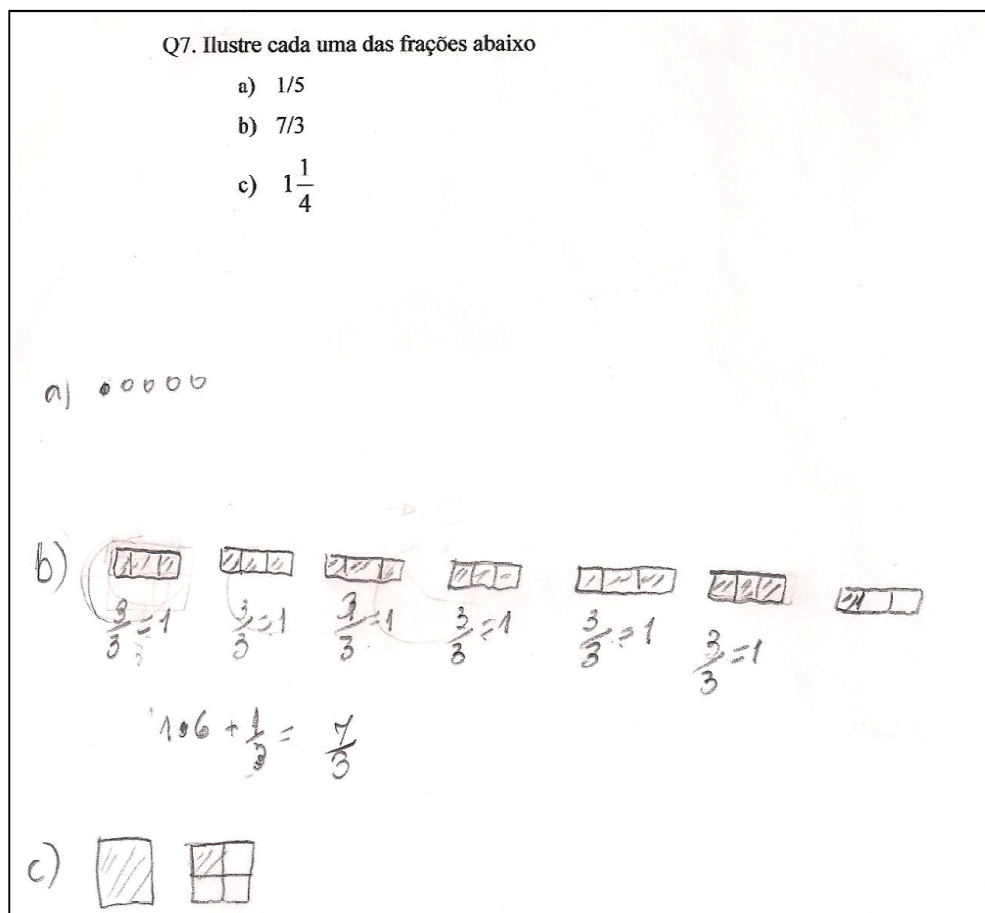 Q7. Ilustre cada uma das frações abaixo
a) 1/5
b) 7/3
c) 1 1/4
a)
b)
3/3 = 1 3/3 = 1 3/3 = 1 3/3 = 1 3/3 = 1 3/3 = 1
1•6 + 1/3 = 7/3
c)